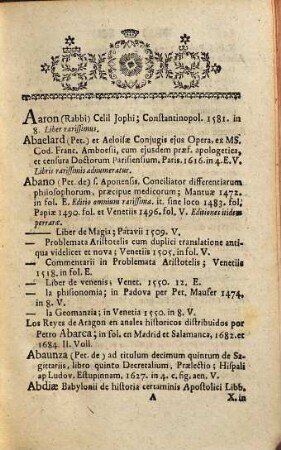 Aaron (Rabbi) Celil Jophi; Constantinopol. 1581. in
8. Liber rarissimus.
Abaelard (Pet.) et Aeloisæ Conjugis ejus Opera. ex MS.
Cod. Franc. Amboesii, cum ejusdem præf. apologetica,
et censura Doctorum Parisiensium. Paris. 1616. in 4. E. V.
Libris rarissimis adnumeratur.
Abano (Pet. de) s. Aponensis, Conciliator differentiarum
philosophorum, præcipue medicorum; Mantuæ 1472.
in fol. E. Editio omnium rarissima. it. sine loco 1483. fol.
Papiæ 1490. fol. et Venetiis 1496. fol. V. Editiones itidem
perraræ.
— Liber de Magia; Patavii 1509. V.
— Problemata Aristotelis cum duplici translatione anti-
qua videlicet et nova; Venetiis 1505, in fol. V.
— Commentarii in Problemata Aristotelis; Venetiis
1518. in fol. E.
— Liber de venenis; Venet. 1550. 12. E.
— la phisionomia; in Padova per Pet. Maufer 1474,
in 8. V.
— la Geomanzia; in Venetia 1550. in 8. V.
Los Reyes de Aragon en anales historicos distribuidos por
Petro Abarca; in fol. en Madrid et Salamanca, 1682. et
1684. II. Voll.
Abaunza (Pet. de) ad titulum decimum quintum de Sa-
gittariis, libro quinto Decretalium, Prælectio; Hispali
ap Ludov. Estupinnam, 1627. in 4. c. fig. aen. V.
Abdiæ Babylonii de historia certaminis Apostolici Libb.
A X. in